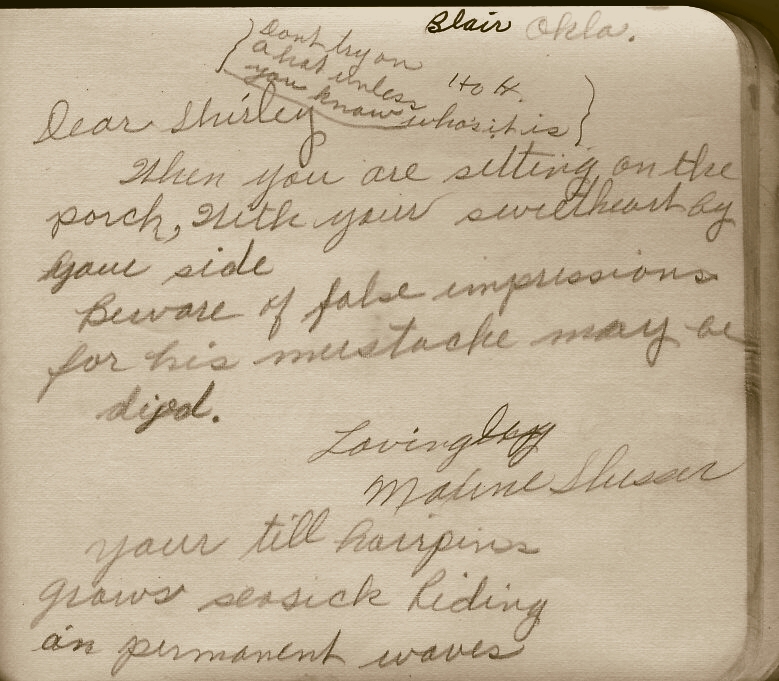 Blair Okla.
Dont try on
a hat unless
you know whos it is
Ho H.
Dear Shirley
When you are setting on the
porch, With your sweetheart by
your side
Beware of false impressions
for his mustache may be
dyed.
Lovingly
Maxine Slusser
your till hairpins
grows seasick riding
on permanent waves